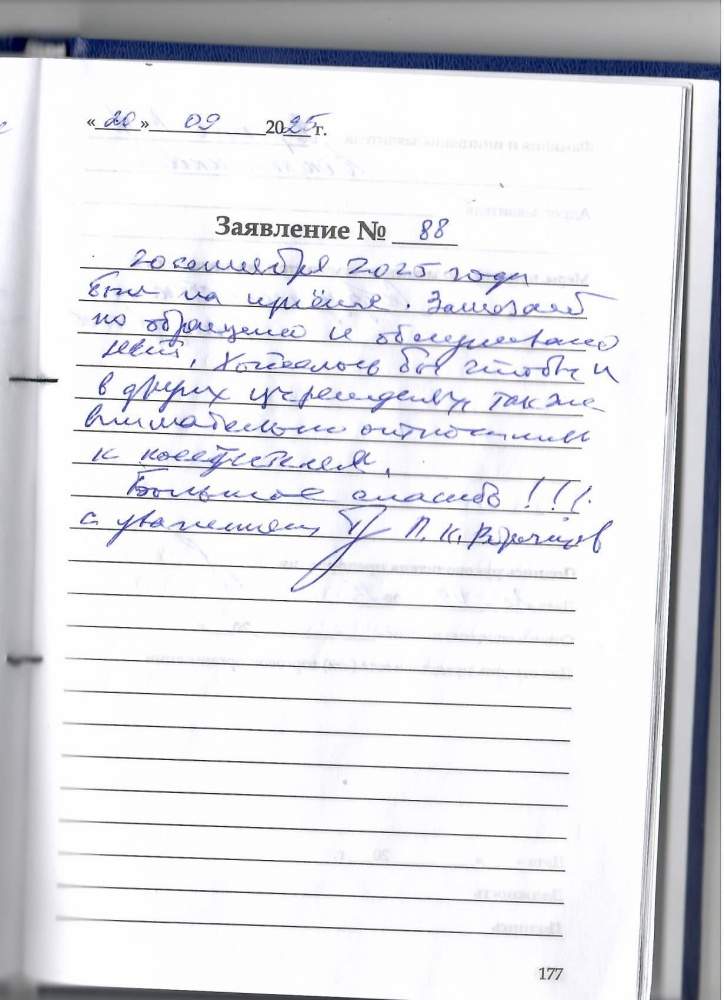 «20» 09 2025 г.
Заявление № 88
20 сентября 2025 года
был на приёме. Замечаний
по обращению и обслуживанию
нет. Хотелось бы чтобы и
в других учреждениях так же
внимательно относились
к посетителям.
Большое спасибо!!!
с уважением П. К.
177